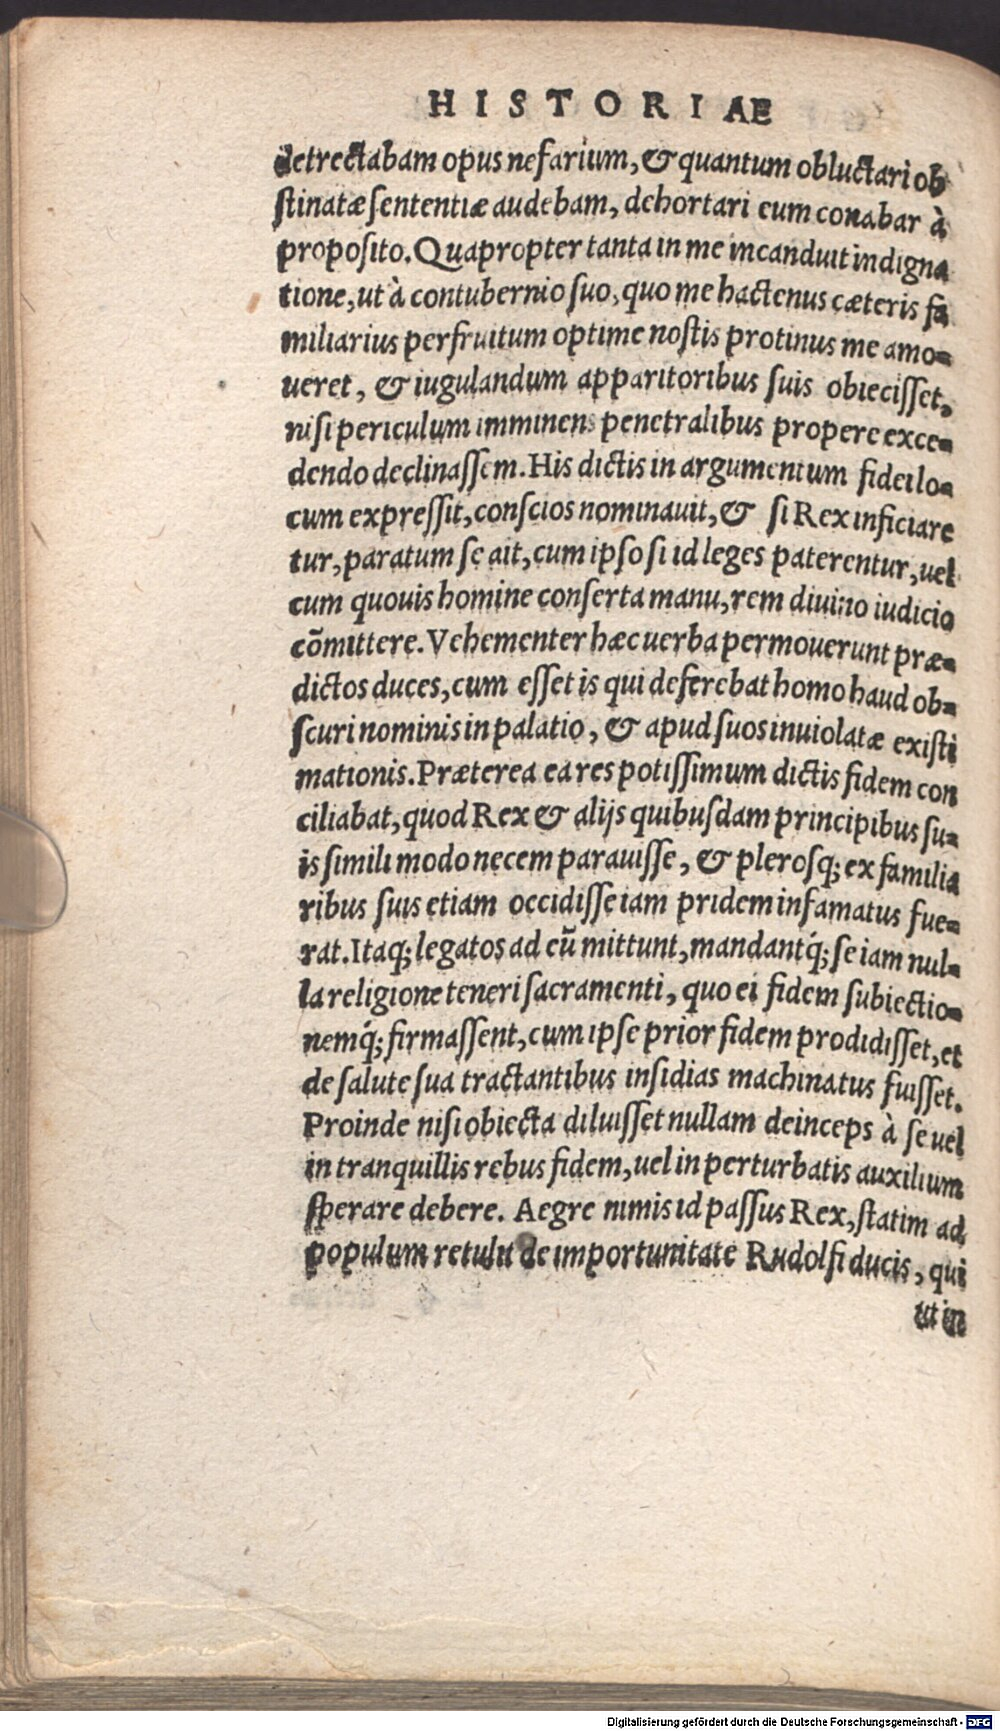 HISTORIAE
detrectabam opus nefarium, & quantum obluctari ob
stinatæ sententiæ audebam, dehortari eum conabar à
proposito. Quapropter tanta in me incanduit indigna
tione, ut à contubernio suo, quo me hactenus cæteris fa
miliarius perfruitum optime nostis protinus me amo=
ueret, & iugulandum apparitoribus suis obiecisset,
nisi periculum imminens penetralibus propere exce=
dendo declinassem. His dictis in argumentum fidei lo=
cum expressit, conscios nominauit, & si Rex inficiare
tur, paratum se ait, cum ipso si id leges paterentur, uel
cum quouis homine conserta manu, rem diuino iudicio
cõmittere. Vehementer hæc uerba permouerunt præ=
dictos duces, cum esset is qui deferebat homo haud ob=
scuri nominis in palatio, & apud suos inuiolatæ existi
mationis. Præterea ea res potissimum dictis fidem con
ciliabat, quod Rex & alijs quibusdam principibus su=
is simili modo necem parauisse, & plerosq; ex familia
ribus suis etiam occidisse iam pridem infamatus fue=
rat. Itaq; legatos ad eũ mittunt, mandantq́; se iam nul=
la religione teneri sacramenti, quo ei fidem subiectio=
nemq́; firmassent, cum ipse prior fidem prodidisset, et
de salute sua tractantibus insidias machinatus fuisset.
Proinde nisi obiecta diluisset nullam deinceps à se uel
in tranquillis rebus fidem, uel in perturbatis auxilium
sperare debere. Aegre nimis id passus Rex, statim ad
populum retulit de importunitate Rudolfi ducis, qui
ut in
Digitalisierung gefördert durch die Deutsche Forschungsgemeinschaft - DFG